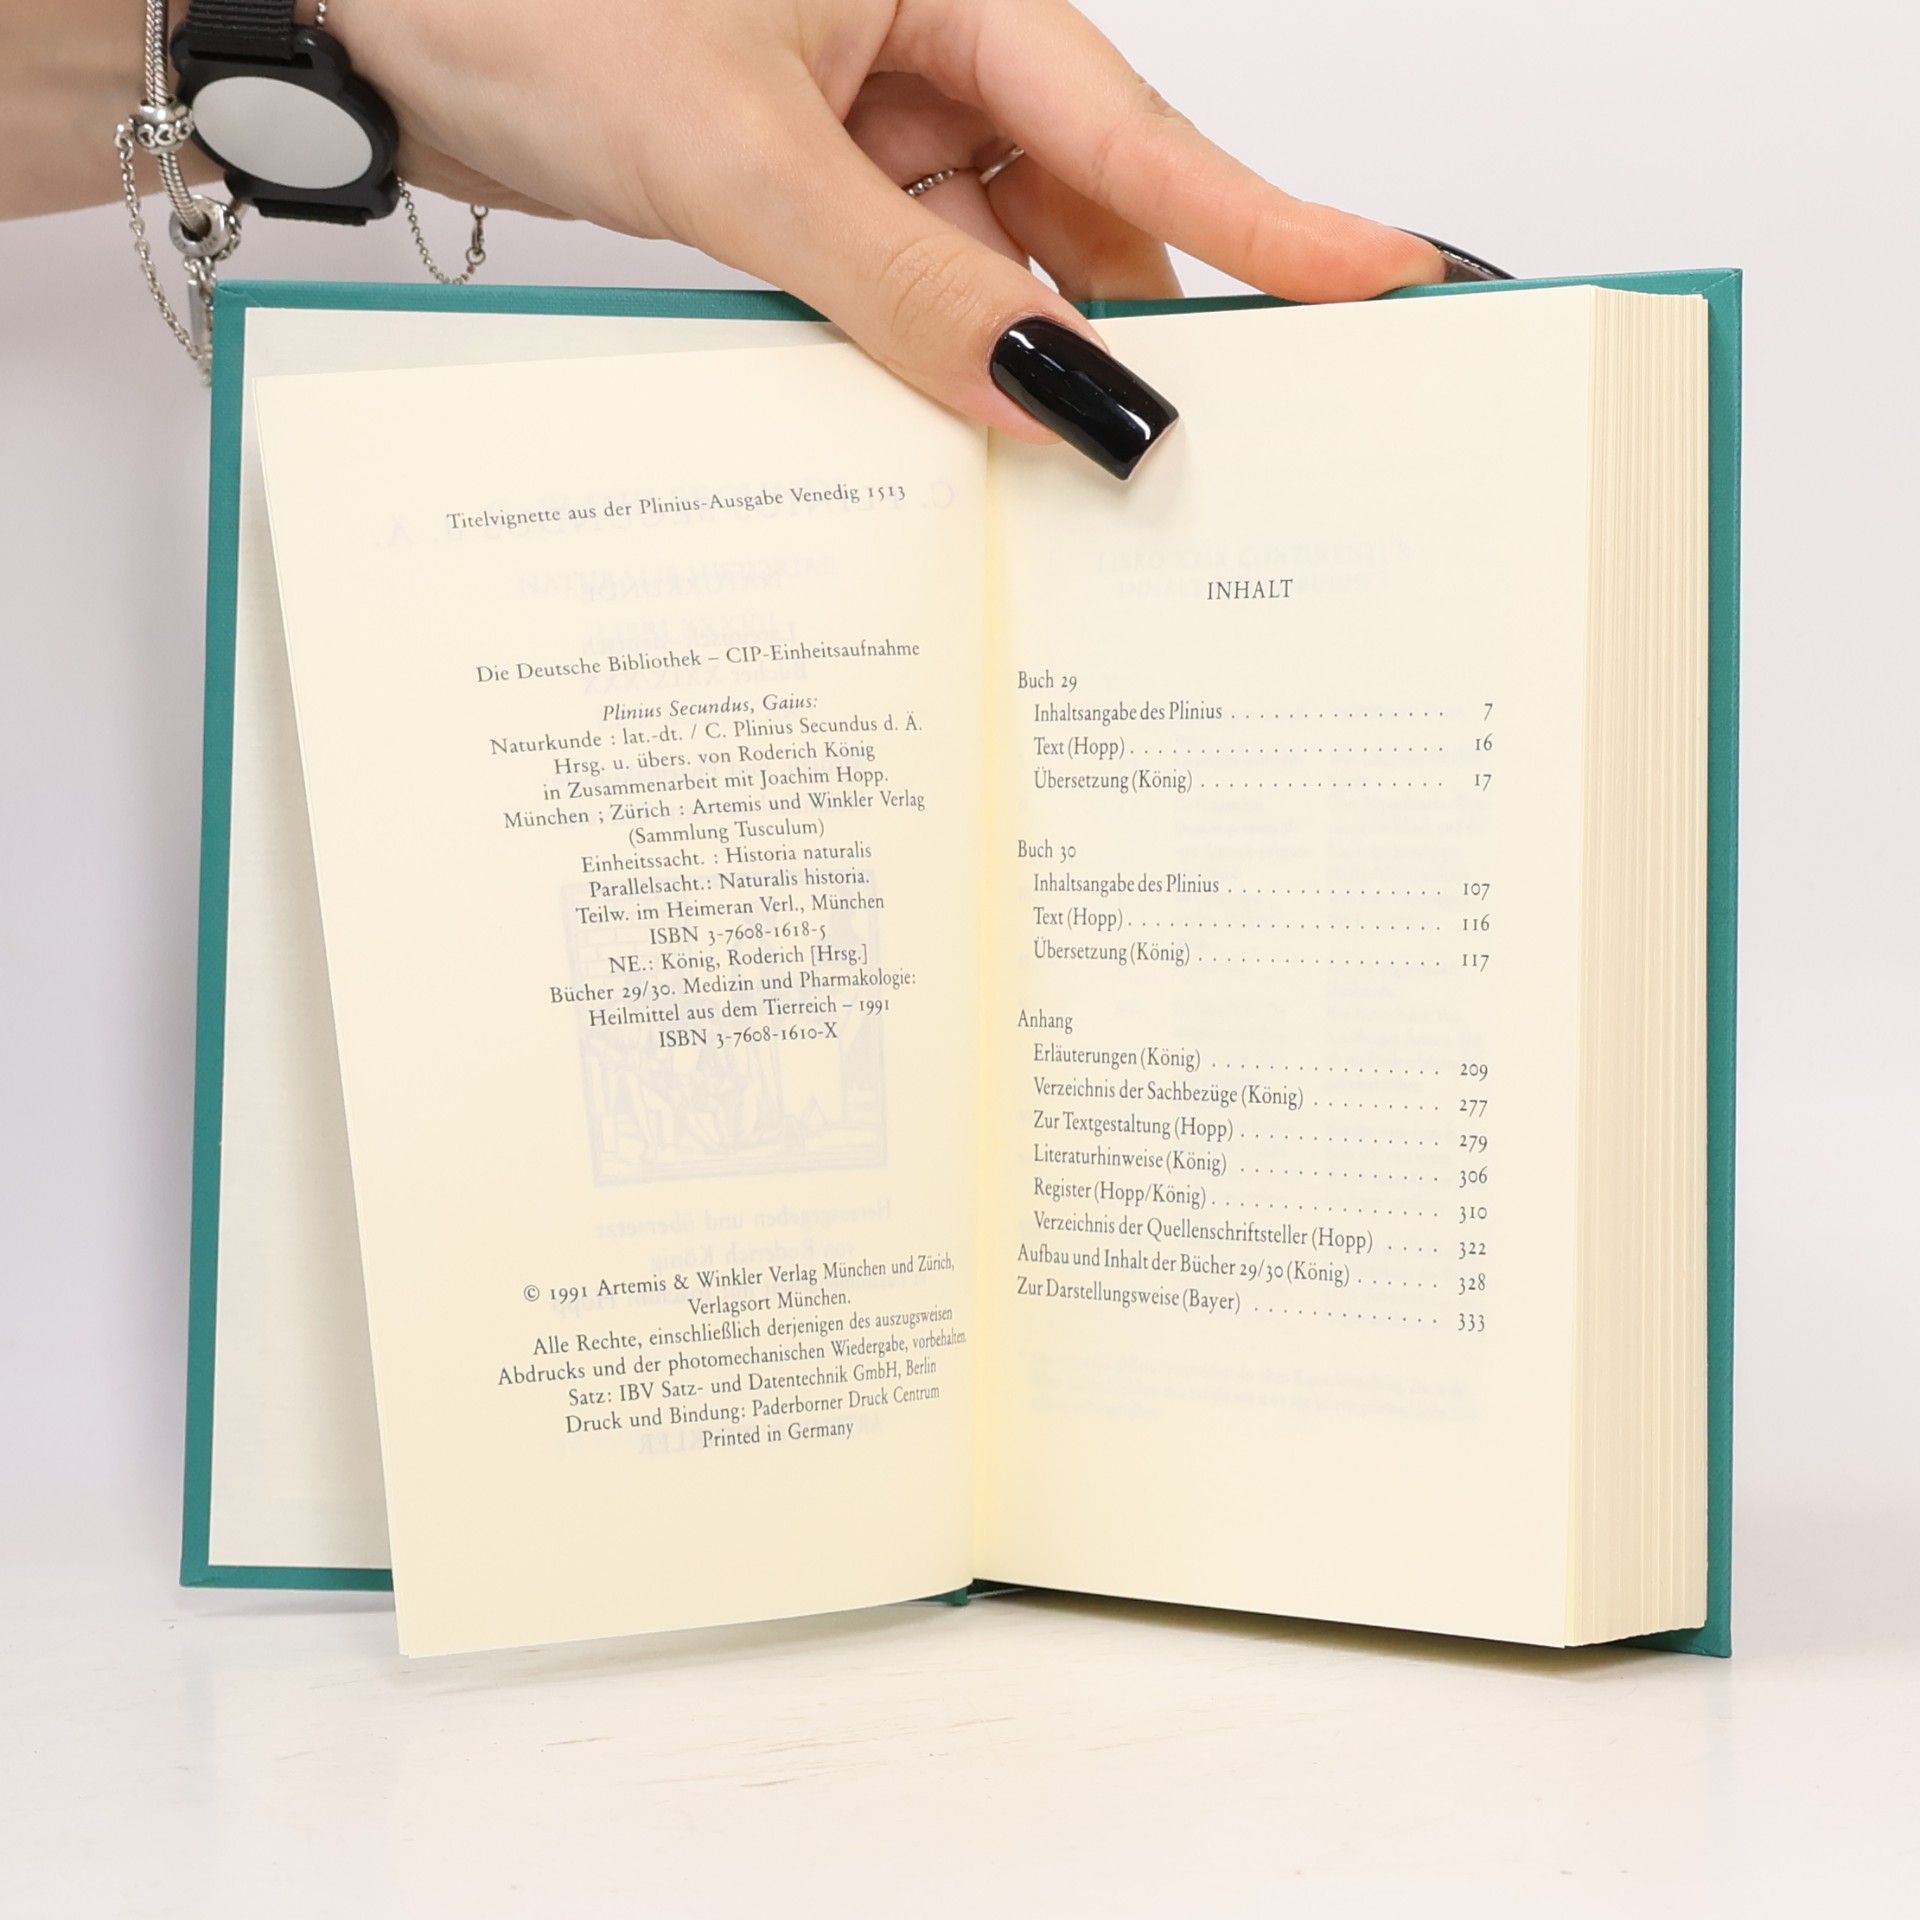 Titelvignette aus der Plinius-Ausgabe Venedig 1513
Die Deutsche Bibliothek – CIP-Einheitsaufnahme
Plinius Secundus, Gaius:
Naturkunde : lat.-dt. / C. Plinius Secundus d. Ä.
Hrsg. u. übers. von Roderich König
in Zusammenarbeit mit Joachim Hopp.
München ; Zürich : Artemis und Winkler Verlag
(Sammlung Tusculum)
Einheitssacht. : Historia naturalis
Parallelsacht.: Naturalis historia.
Teilw. im Heimeran Verl., München
ISBN 3-7608-1618-5
NE.: König, Roderich [Hrsg.]
Bücher 29/30. Medizin und Pharmakologie:
Heilmittel aus dem Tierreich – 1991
ISBN 3-7608-1610-X
© 1991 Artemis & Winkler Verlag München und Zürich,
Verlagsort München.
Alle Rechte, einschließlich derjenigen des auszugsweisen
Abdrucks und der photomechanischen Wiedergabe, vorbehalten.
Satz: IBV Satz- und Datentechnik GmbH, Berlin
Druck und Bindung: Paderborner Druck Centrum
Printed in Germany
INHALT
Buch 29
Inhaltsangabe des Plinius . . . . . . . . . . . . . . . 7
Text (Hopp) . . . . . . . . . . . . . . . . . . . . . . 16
Übersetzung (König) . . . . . . . . . . . . . . . . . 17
Buch 30
Inhaltsangabe des Plinius . . . . . . . . . . . . . . . 107
Text (Hopp) . . . . . . . . . . . . . . . . . . . . . . 116
Übersetzung (König) . . . . . . . . . . . . . . . . . 117
Anhang
Erläuterungen (König) . . . . . . . . . . . . . . . . 209
Verzeichnis der Sachbezüge (König) . . . . . . . . . 277
Zur Textgestaltung (Hopp) . . . . . . . . . . . . . . 279
Literaturhinweise (König) . . . . . . . . . . . . . . 306
Register (Hopp/König) . . . . . . . . . . . . . . . . 310
Verzeichnis der Quellenschriftsteller (Hopp) . . . . 322
Aufbau und Inhalt der Bücher 29/30 (König) . . . . . . 328
Zur Darstellungsweise (Bayer) . . . . . . . . . . . . . 333